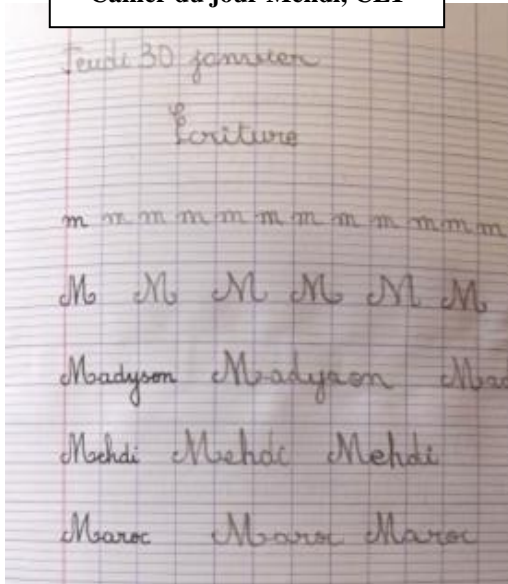 Cahier du jour Mehdi, CE1
Jeudi 30 janvier
Écriture
m m m m m m m m m m m m
M M M M M M
Madyson Madyson Mad
Mehdi Mehdi Mehdi
Maroc Maroc Maroc